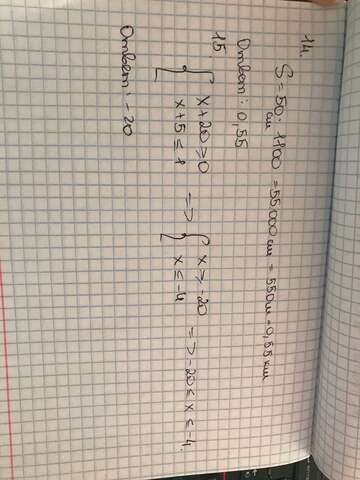 14.
S = 50 · 1100 = 55000 см = 550 м = 0,55 км
см
Ответ: 0,55
15.
{ x+20 ≥ 0 => { x ≥ -20 => -20 ≤ x ≤ -4.
x+5 ≤ 1 x ≤ -4
Ответ: -20